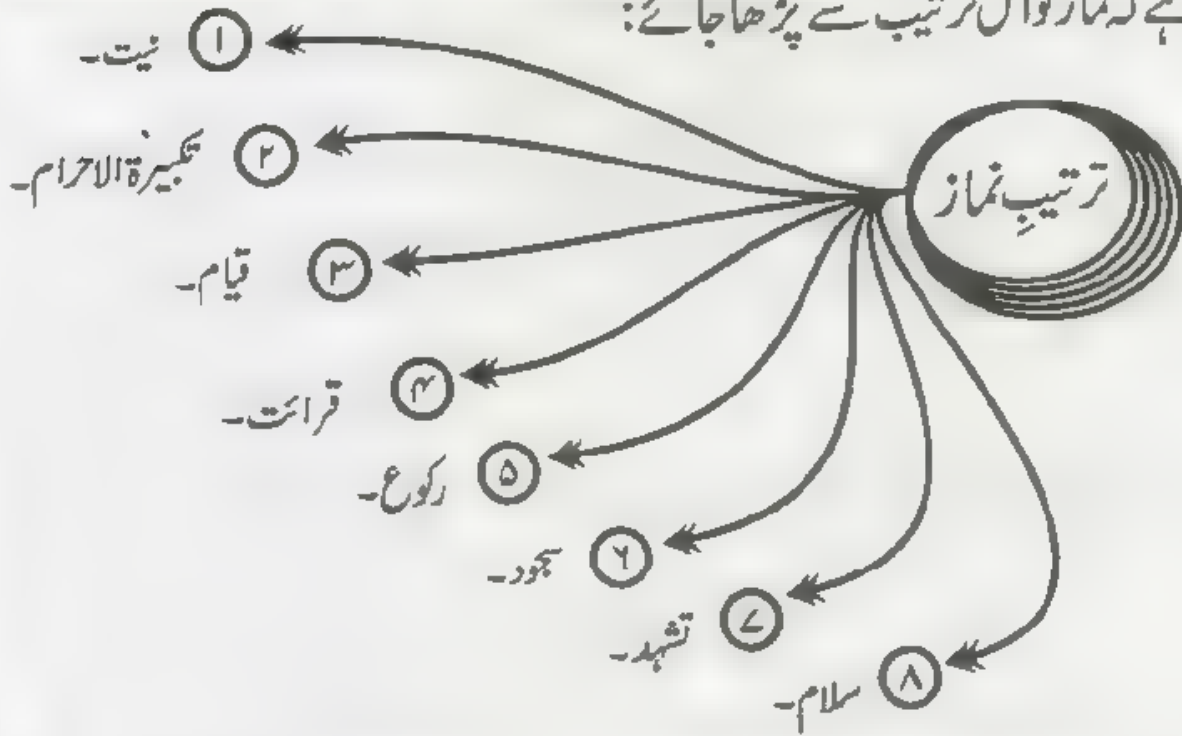 ہے کہ نماز کو اس ترتیب سے پڑھا جائے:
ترتیبِ نماز
۱ نیت۔
۲ تکبیرۃ الاحرام۔
۳ قیام۔
۴ قرائت۔
۵ رکوع۔
۶ سجود۔
۷ تشہد۔
۸ سلام۔